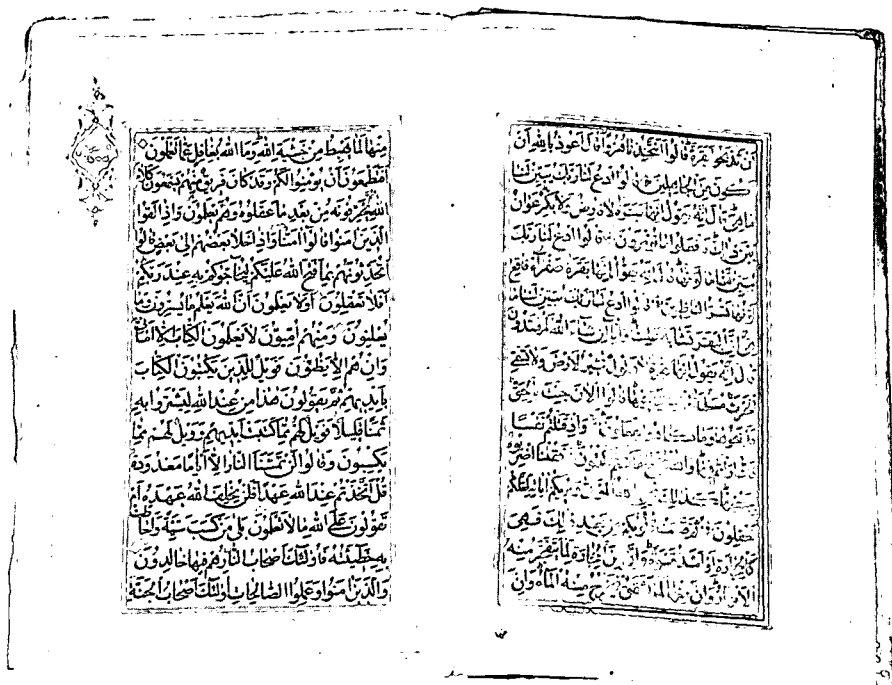 أن تذبحوا بقرة قالوا أتتخذنا هزوا قال أعوذ بالله أن
أكون من الجاهلين قالوا ادع لنا ربك يبين لنا
ما هي قال إنه يقول إنها بقرة لا فارض ولا بكر عوان
بين ذلك فافعلوا ما تؤمرون قالوا ادع لنا ربك
يبين لنا ما لونها قال إنه يقول إنها بقرة صفراء فاقع
لونها تسر الناظرين قالوا ادع لنا ربك يبين لنا ما
هي إن البقر تشابه علينا وإنا إن شاء الله لمهتدون
قال إنه يقول إنها بقرة لا ذلول تثير الأرض ولا تسقي
الحرث مسلمة فيها قالوا الآن جئت بالحق
فذبحوها وما كادوا يفعلون وإذ قتلتم نفسا
فادارأتم فيها والله مخرج ما كنتم تكتمون فقلنا اضربوه
ببعضها كذلك يحيي الله الموتى ويريكم آياته لعلكم
تعقلون ثم قست قلوبكم من بعد ذلك فهي
كالحجارة أو أشد قسوة وإن من الحجارة لما يتفجر منه
الأنهار وإن منها لما يشقق فيخرج منه الماء وإن
منها لما يهبط من خشية الله وما الله بغافل عما تعملون
أفتطمعون أن يؤمنوا لكم وقد كان فريق منهم يسمعون كلام
الله ثم يحرفونه من بعد ما عقلوه وهم يعلمون وإذا لقوا
الذين امنوا قالوا امنا وإذا خلا بعضهم إلى بعض قالوا
أتحدثونهم بما فتح الله عليكم ليحاجوكم به عند ربكم
أفلا تعقلون أولا يعلمون أن الله يعلم ما يسرون وما
يعلنون ومنهم أميون لا يعلمون الكتاب إلا أماني
وإن هم إلا يظنون فويل للذين يكتبون الكتاب
بأيديهم ثم يقولون هذا من عند الله ليشتروا به
ثمنا قليلا فويل لهم مما كتبت أيديهم وويل لهم مما
يكسبون وقالوا لن تمسنا النار إلا أياما معدودة
قل أتخذتم عند الله عهدا فلن يخلف الله عهده أم
تقولون على الله ما لا تعلمون بلى من كسب سيئة وأحاطت
به خطيئته فأولئك أصحاب النار هم فيها خالدون
والذين امنوا وعملوا الصالحات أولئك أصحاب الجنة